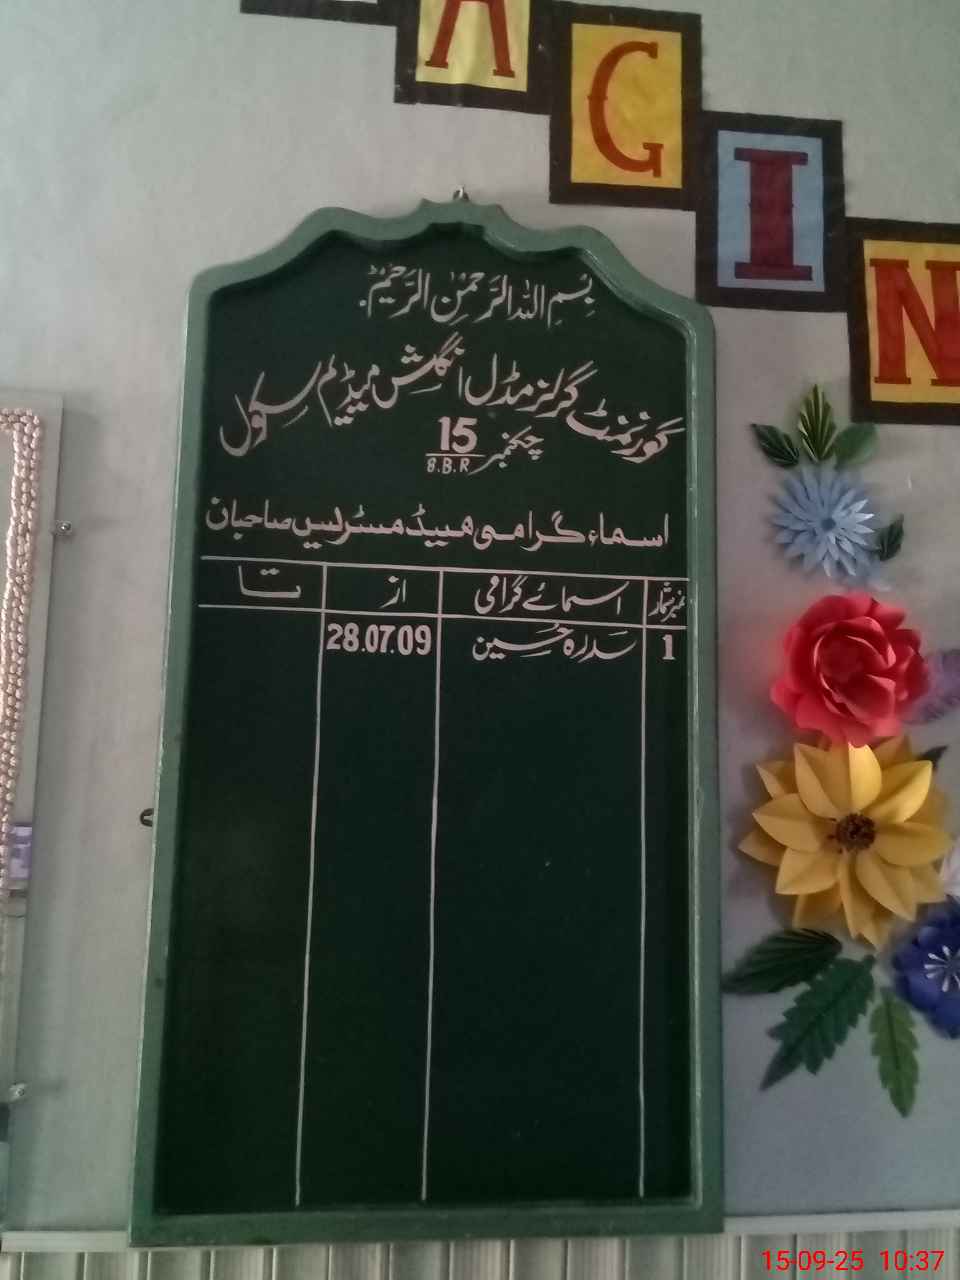 A
G
I
N
بِسْمِ اللہِ الرَّحْمٰنِ الرَّحِيْمِ
گورنمنٹ گرلز مڈل انگلش میڈیم سکول
چکنمبر 15
8.B.R
اسماء گرامی ہیڈ مسٹریس صاحبان
نمبر شمار اسمائے گرامی از تا
1 سدرہ حسین 28.07.09
15-09-25 10:37